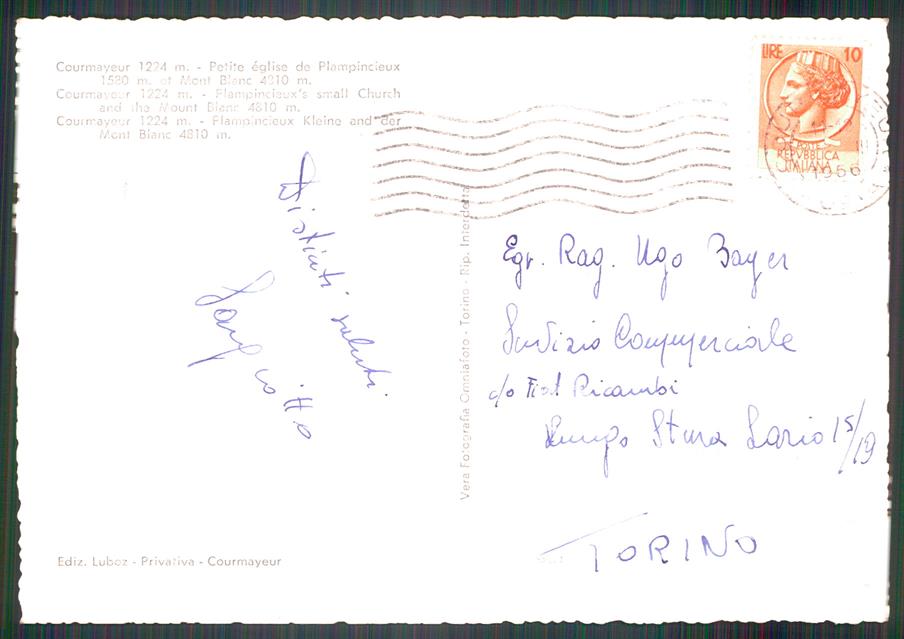 Courmayeur 1224 m. - Petite église de Plampincieux
1580 m. et Mont Blanc 4810 m.
Courmayeur 1224 m. - Flampincieux's small Church
and the Mount Blanc 4810 m.
Courmayeur 1224 m. - Flampincieux Kleine and der
Mont Blanc 4810 m.
LIRE 10
POSTE
REPVBBLICA
ITALIANA
1956
Distinti saluti
Vera Fotografia Omniafoto - Torino - Rip. Interdetta
Egr. Rag. Ugo Bayer
Servizio Commerciale
c/o Fiat Ricambi
Lungo Stura Lazio 15/19
TORINO
Ediz. Luboz - Privativa - Courmayeur